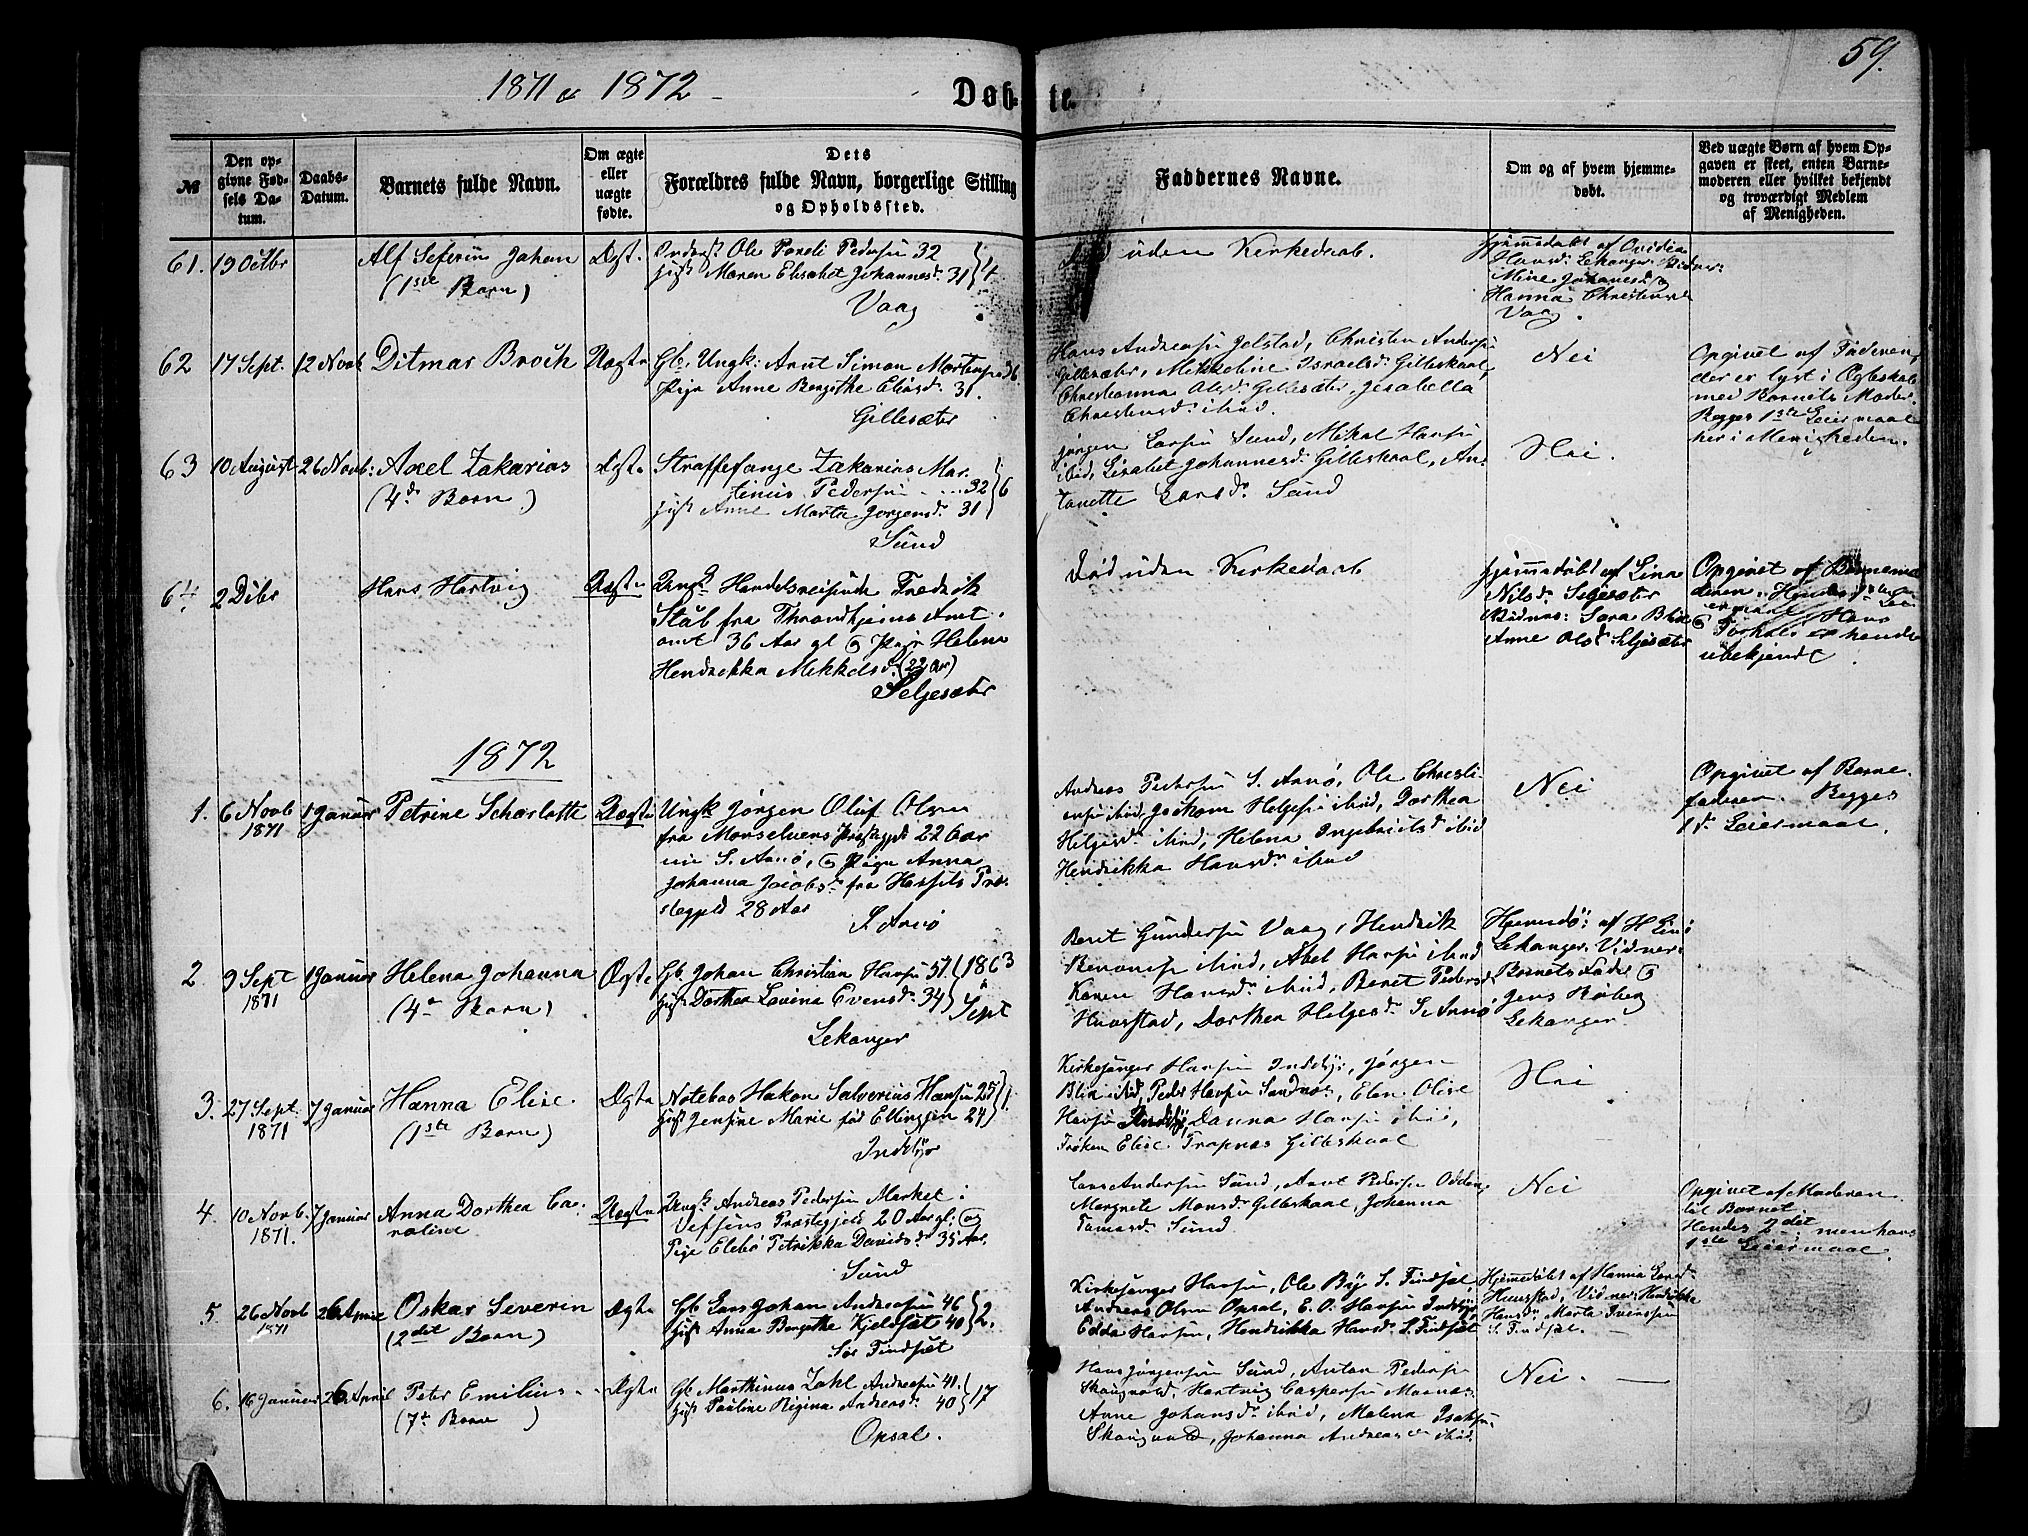 1871 & 1872
Døbte.
59.
№
Den opgivne Fødsels Datum.
Daabs-Datum.
Barnets fulde Navn.
Om ægte eller uægte fødte.
Dets Forældres fulde Navn, borgerlige Stilling og Opholdssted.
Faddernes Navne.
Om og af hvem hjemmedøbt.
Ved uægte Børn af hvem Opgaven er skeet, enten Barnemoderen eller hvilket bekjendt og troværdigt Medlem af Menigheden.
61. 19 Octbr
Alf Seferin Johan
(1ste Barn)
Ægt.
Ole Pareli Pedersen 32
Maren Elisabet Johannesd. 31
4
Vaag
Død uden Kirkedaab.
Hjemmedøbt af Ovidia
Hansd. Lekanger. Vidner:
Mine Johannesd. og
Hanna Christensd.
Vaag.
62 17 Sept. 12 Novb
Ditmar Broch
Uægte
Gb. Ungk: Arnt Simon Mortensen 26
Pige Anne Bergithe Eliasd. 31.
Gillesæter
Hans Andreasen Jelstad, Christen Andersen
Gillesæter, Mikkeline Israelsd. Gilleskaal,
Christianna Olsd. Gillesæter, Jesabella
Christensd. ibid.
Nei
Opgivet af Faderen,
der er lyst i Ægteskab
med Barnets Moder.
Begges 1ste Leiermaal
her i Menigheden.
63 10 August 26 Novb:
Axel Zakarias
(4de Barn)
Ægte
Straffefange Zakarias Mar-
tinus Pedersen 32
Anne Marta Jørgensd. 31
6
Sund
Jørgen Larsen Sund, Mikal Hansen
ibid, Lisabet Johannesd. Gilleskaal, An-
tonette Larsdr. Sund
Nei.
64 2 Dcbr
Hans Hartvig
Uægte
Ungk. Handelsreisende Fredrik
Stab fra Throndhjems Amt.
amt 36 Aar gl og Pige Helene
Hendrekka Mikkelsd. (22 Aar)
Seljesæter
Død uden Kirkedaab
Hjemmedøbt af Lina
Nilsd. Seljesæter
Vidnes: Sara B
Anne Olsd. Seljesæter
Opgivet af Barnemo
deren. Hendes
Hans
Forhold er hende
ubekjendt.
1872
1. 6 Novb 1 Januar
1871
Petrine Scharlotte
Uægte
Ungk Jørgen Oluf Olsen
fra Maaselvens Præstegjeld 22 Aar
nu S. Arnø, og Pigen Anna
Johanna Jacobsd. fra Hassels Præ-
stegjeld 28 Aar
S. Arnø
Andreas Pedersen S. Arnø, Ole Christi-
ansen ibid, Joakom Helgesen ibid, Dorthea
Helgesd. ibid, Helena Ingebrigtsd. ibid
Hendrikka Hansdr. ibid
Nei
Opgivet af Barne-
faderen. Begges
1ste Leiermaal.
2 9 Sept 1 Januar
1871
Helena Johanna
(4de Barn)
Ægte
Gb. Johan Christian Hansen 57
Dorthea Lovina Evensd. 34
1863
Sept
Lekanger
Beret Gundersen Vaag, Hendrik
Benonisen ibid, Abel Hansen ibid
Karen Hansdr. ibid, Beret Pedersd.
Haarstad, Dorthea Helgesd. S. Arnø
Hjemmedø: af H
Lekanger. Vidner:
Barnets Fader og
Jens Røberg
Lekanger.
3. 27 Sept. 7 Januar
1871
Hanna Elise.
(1ste Barn)
Ægte
Notebas Hakon Salverius Hansen 25
Jensine Marie fød Ellingsen 24
1.
Indebyr
Kirkesanger Hansen Indebyr, Jørgen
Blin ibid, Peder Hansen Sandnes, Elen Olise
Hansen Indebyr, Danna Hansen ibid,
Frøken Elise Trapnas Gilleskaal
Nei
4. 10 Novb. 7 Januar
1871.
Anna Dorthea Ca-
roline
Uægte
Ungk. Andreas Pedersen Market i
Vefsens Præstegjeld 20 Aar gl. og
Pige Elebø Petrikka Davidsd. 35 Aar.
Sund
Lars Andersen Sund, Arnt Pedersen Odden,
Margrete Monsd. Gilleskaal, Johanna
Tomasd. Sund
Nei
Opgivet af Moderen
til Barnet.
Hendes 2det, men hans
1ste Leiermaal.
5 26 Novb
1871
Oskar Severin
(2det Barn)
Ægte
Gb Lars Johan Andreasen 46
Anna Bergithe Kjeldsdt 40
2.
Sør Findset
Kirkesanger Hansen, Ole Bye S. Findset
Andreas Olsen Opsal, E. O. Hansen Indebyr
Edda Hansen, Hendrikka Hansd. S. Findset
Hjemmedøbt af Hanna Larsd.
Haarstad, Vidner: Hendrikka
Hansdr. Marta Iversen
S. Findset.
6. 16 Januar 26 April
Peter Emilius
(7de Barn)
Ægte
Gb Marthinus Zahl Andreasen 41.
Pauline Regina Andreasd. 40
17
Opsal.
Hans Jørgensen Sund, Anton Pedersen
Skaugvold, Hartvig Caspersen Mornes
Anne Johansdr. ibid, Malena Isaksen
Skaugvold, Johanna Andreasdr. ibid.
Nei.